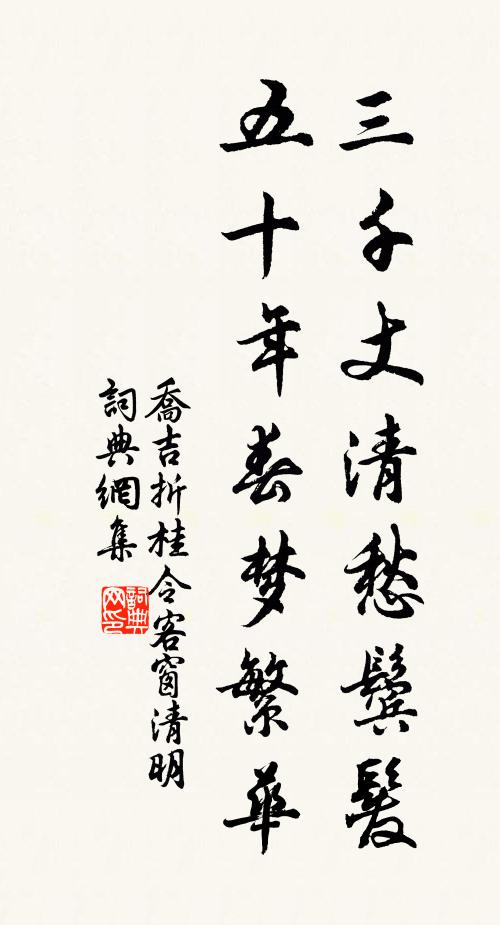 三千丈清愁鬓髮
五十年春梦繁華
喬吉折桂令客窗清明
詞典網集
詞典
网印